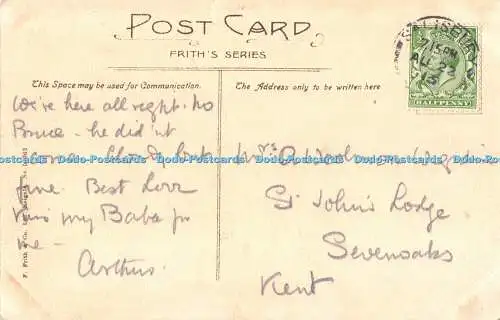 POST CARD
FRITH'S SERIES
This Space may be used for Communication.
The Address only to be written here
We're here all right. No
Bruce - he did'nt
fine. Best Love
Kiss my Baba for
me -
Arthur.
Mrs
St. John's Lodge
Sevenoaks
Kent
7 15 PM
AU 22
13
HALFPENNY
Dodo-Postcards Dodo-Postcards Dodo-Postcards Dodo-Postcards Dodo-Postcards
F. Frith & Co. Ltd. Reigate